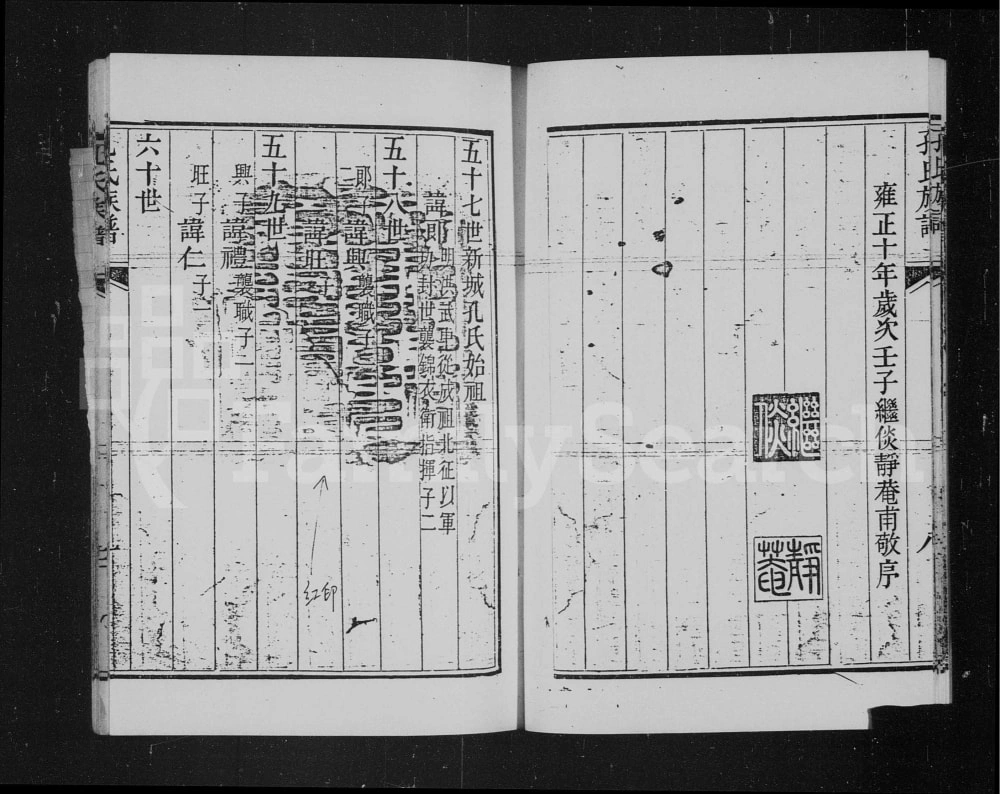 孔氏族譜
八
雍正十年歲次壬子繼倓靜菴南敬序
繼倓
靜菴
五十七世新城孔氏始祖
諱郎
明洪武
從成祖北征以軍
功封世襲錦衣衛指揮子二
五十八世
郎子諱興襲職子
諱旺子
五十九世
興子諱禮襲職子二
旺子諱仁子
六十世
孔氏族譜
紅印
FamilySearch